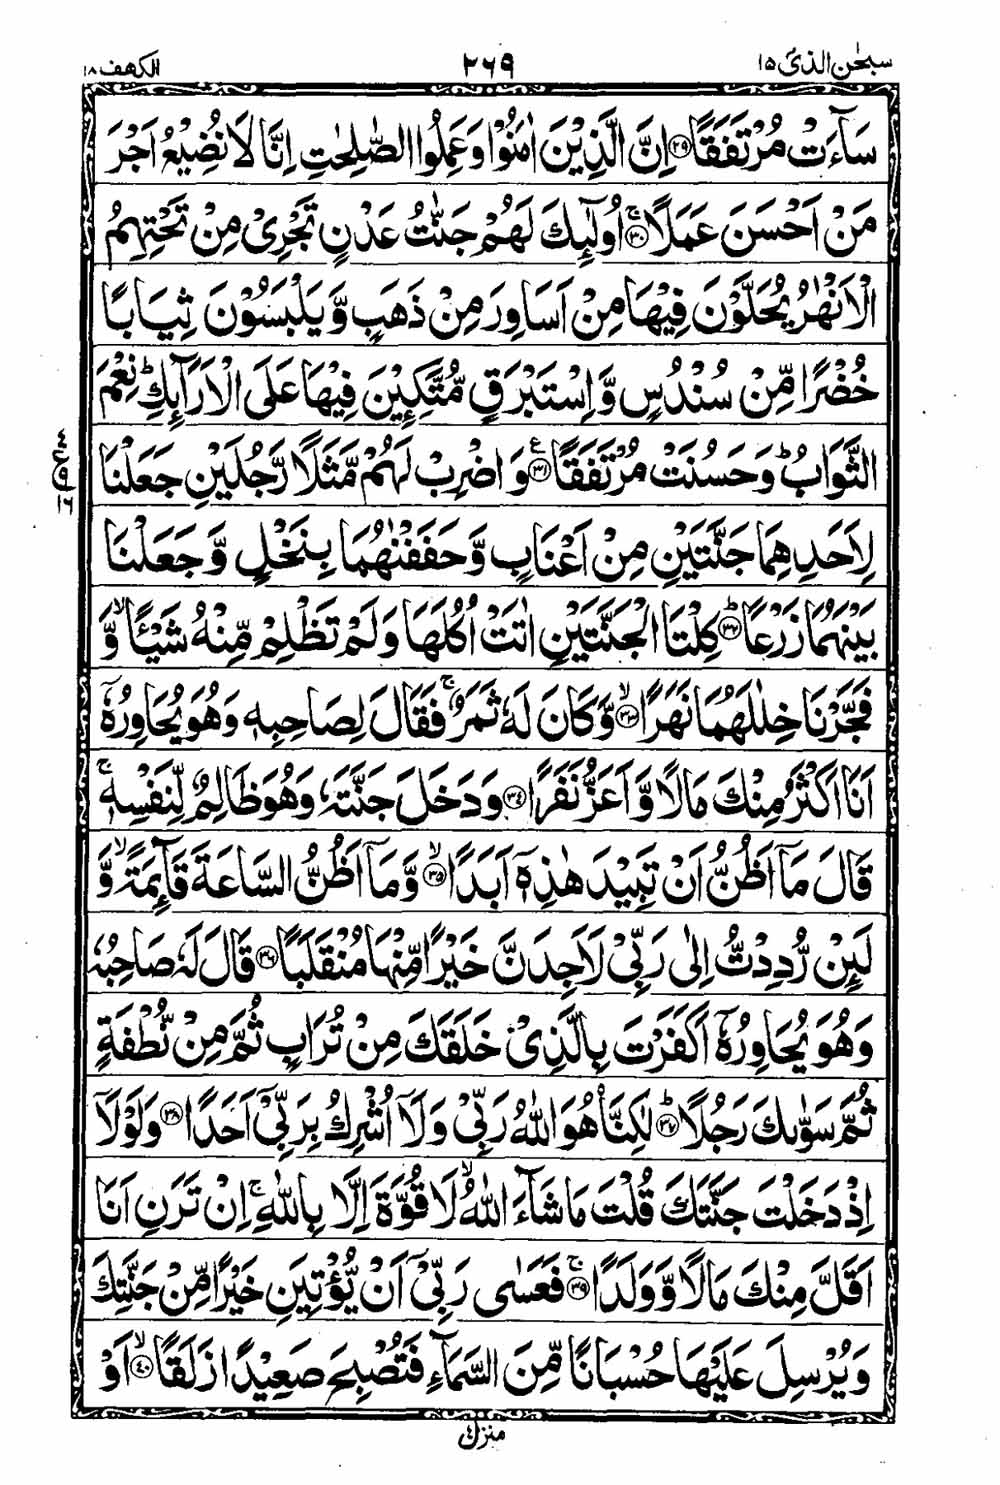 سبحٰن الذی ۱۵
۲۶۹
الکهف ۱۸
سَآءَتْ مُرْتَفَقًا ﴿۲۹﴾ اِنَّ الَّذِیْنَ اٰمَنُوْا وَعَمِلُوا الصّٰلِحٰتِ اِنَّا لَا نُضِیْعُ اَجْرَ
مَنْ اَحْسَنَ عَمَلًا ﴿۳۰﴾ۚ اُولٰٓئِكَ لَهُمْ جَنّٰتُ عَدْنٍ تَجْرِیْ مِنْ تَحْتِهِمُ
الْاَنْهٰرُ یُحَلَّوْنَ فِیْهَا مِنْ اَسَاوِرَ مِنْ ذَهَبٍ وَّیَلْبَسُوْنَ ثِیَابًا
خُضْرًا مِّنْ سُنْدُسٍ وَّاِسْتَبْرَقٍ مُّتَّكِـِٕیْنَ فِیْهَا عَلَی الْاَرَآئِكِ ؕ نِعْمَ
الثَّوَابُ ؕ وَحَسُنَتْ مُرْتَفَقًا ﴿۳۱﴾ع وَاضْرِبْ لَهُمْ مَّثَلًا رَّجُلَیْنِ جَعَلْنَا
ع
۱۶
لِاَحَدِهِمَا جَنَّتَیْنِ مِنْ اَعْنَابٍ وَّحَفَفْنٰهُمَا بِنَخْلٍ وَّجَعَلْنَا
بَیْنَهُمَا زَرْعًا ﴿۳۲﴾ؕ كِلْتَا الْجَنَّتَیْنِ اٰتَتْ اُكُلَهَا وَلَمْ تَظْلِمْ مِّنْهُ شَیْـًٔا ۙ وَّ
فَجَّرْنَا خِلٰلَهُمَا نَهَرًا ﴿۳۳﴾ۙ وَّكَانَ لَهٗ ثَمَرٌ ۚ فَقَالَ لِصَاحِبِهٖ وَهُوَ یُحَاوِرُهٗۤ
اَنَا اَكْثَرُ مِنْكَ مَالًا وَّاَعَزُّ نَفَرًا ﴿۳۴﴾ وَدَخَلَ جَنَّتَهٗ وَهُوَ ظَالِمٌ لِّنَفْسِهٖ ۚ
قَالَ مَاۤ اَظُنُّ اَنْ تَبِیْدَ هٰذِهٖۤ اَبَدًا ﴿۳۵﴾ۙ وَّمَاۤ اَظُنُّ السَّاعَةَ قَآئِمَةً ۙ وَّ
لَئِنْ رُّدِدْتُّ اِلٰی رَبِّیْ لَاَجِدَنَّ خَیْرًا مِّنْهَا مُنْقَلَبًا ﴿۳۶﴾ قَالَ لَهٗ صَاحِبُهٗ
وَهُوَ یُحَاوِرُهٗۤ اَكَفَرْتَ بِالَّذِیْ خَلَقَكَ مِنْ تُرَابٍ ثُمَّ مِنْ نُّطْفَةٍ
ثُمَّ سَوّٰىكَ رَجُلًا ﴿۳۷﴾ؕ لٰكِنَّا۠ هُوَ اللّٰهُ رَبِّیْ وَلَاۤ اُشْرِكُ بِرَبِّیْۤ اَحَدًا ﴿۳۸﴾ وَلَوْلَاۤ
اِذْ دَخَلْتَ جَنَّتَكَ قُلْتَ مَا شَآءَ اللّٰهُ ۙ لَا قُوَّةَ اِلَّا بِاللّٰهِ ۚ اِنْ تَرَنِ اَنَا
اَقَلَّ مِنْكَ مَالًا وَّوَلَدًا ﴿۳۹﴾ۚ فَعَسٰی رَبِّیْۤ اَنْ یُّؤْتِیَنِ خَیْرًا مِّنْ جَنَّتِكَ
وَیُرْسِلَ عَلَیْهَا حُسْبَانًا مِّنَ السَّمَآءِ فَتُصْبِحَ صَعِیْدًا زَلَقًا ﴿۴۰﴾ۙ اَوْ
منزل ۴